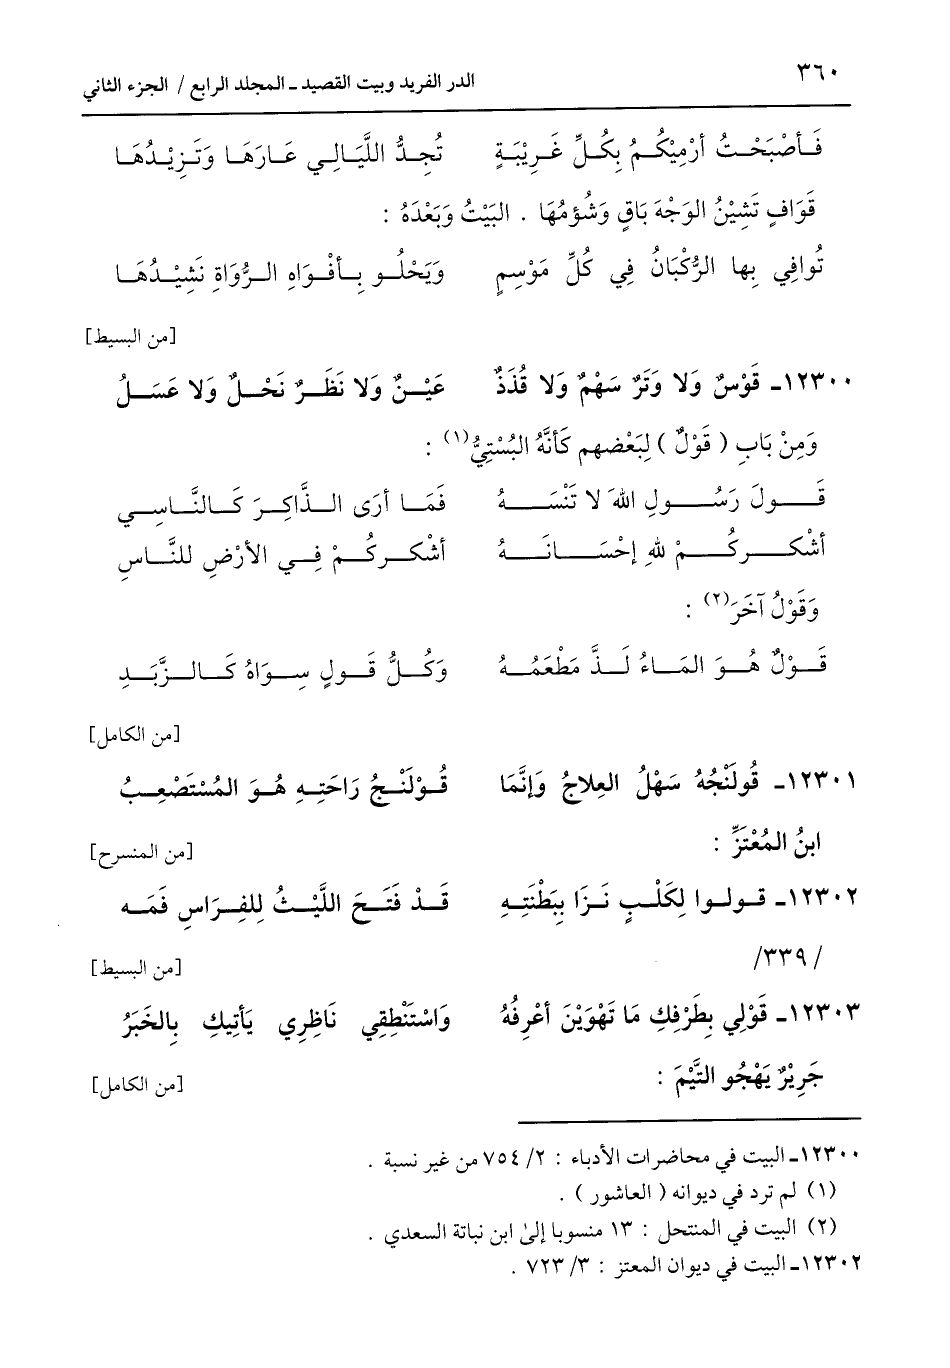 ٣٦٠ الدر الفريد وبيت القصيد ـ المجلد الرابع / الجزء الثاني
فَأصْبَحْتُ أرْمِيْكُمُ بِكُلِّ غَرِيْبَةٍ تُجِدُّ اللَّيَالِي عَارَهَا وَتَزِيْدُهَا
قَوَافٍ تَشِيْنُ الوَجْهَ بَاقٍ وَشُؤمُهَا . البَيْتُ وَبَعْدَهُ :
تُوافِي بِها الرُّكْبَانُ فِي كُلِّ مَوْسِمٍ وَيَحْلُو بِأفْوَاهِ الرُّوَاةِ نَشِيْدُهَا
[من البسيط]
١٢٣٠٠ـ قَوْسٌ وَلا وَتَرٌ سَهْمٌ وَلا قُذَذٌ عَيْنٌ وَلا نَظَرٌ نَحْلٌ وَلا عَسَلُ
وَمِنْ بَابِ ( قَوْلٌ ) لِبَعْضهم كَأنَّهُ البُسْتِيُّ(١) :
قَولَ رَسُولِ اللهَ لا تَنْسَهُ فَمَا أرَى الذَّاكِرَ كَالنَّاسِي
أشْكركُمْ للهِ إحْسَانَهُ أشْكركُمْ فِي الأرْضِ للنَّاسِ
وَقَوْلُ آخَرَ(٢) :
قَولٌ هُوَ المَاءُ لَذَّ مَطْعَمُهُ وَكُلُّ قَولٍ سِوَاهُ كَالزَّبَدِ
[من الكامل]
١٢٣٠١ـ قُولَنْجُهُ سَهْلُ العِلاجُ وَإنَّمَا قُوْلَنْجُ رَاحَتِهِ هُوَ المُسْتَصْعِبُ
ابنُ المُعْتَزِّ : [من المنسرح]
١٢٣٠٢ـ قولوا لِكَلْبٍ نَزَا بِبَطْنَتِهِ قَدْ فَتَحَ اللَّيْثُ لِلفِرَاسِ فَمَه
/ ٣٣٩/ [من البسيط]
١٢٣٠٣ـ قَوْلي بِطَرْفِكِ مَا تَهْوَيْنَ أعْرِفُهُ وَاسْتَنْطِقِي نَاظِري يَأتيكِ بِالخَبَرُ
جَرِيْرٌ يَهْجُو التَّيْمَ : [من الكامل]
١٢٣٠٠ـ البيت في محاضرات الأدباء : ٢/ ٧٥٤ من غير نسبة .
(١) لم ترد في ديوانه ( العاشور ) .
(٢) البيت في المنتحل : ١٣ منسوبا إلىٰ ابن نباتة السعدي .
١٢٣٠٢ـ البيت في ديوان المعتز : ٣/ ٧٢٣ .